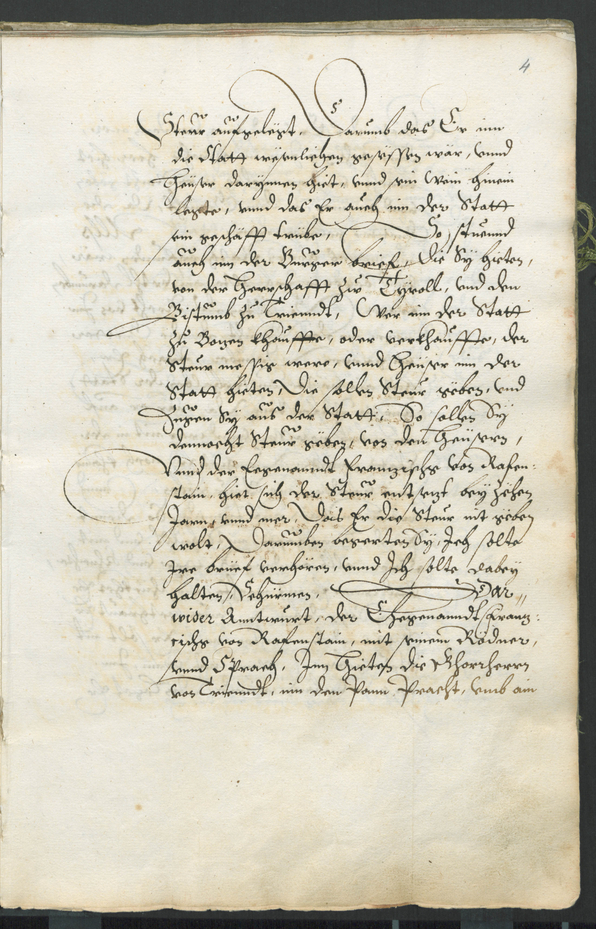 4
Steur aufgelegt, Darumb das Er inn
die Statt wesenlichen gesessen wär, vnnd
heuser darynnen hiet, vnnd sein Wein hinein
legte, vnnd das Er auch inn der Statt
sein geschäfft tribe, So stuennd
auch inn der Burger brief, die Sy hieten,
von der Herrschafft zu Tyroll, vnd den
Bistumb zu Triendt, Wer inn der Statt
zu Bozen khauffte, oder verkhauffte, der
Steur messig were, vnnd heuser inn der
Statt hieten, die sollen Steur geben, vnd
zugen Sy aus der Statt, So sollen Sy
dennocht Steur geben, von den heusern,
Vnnd der Eegenanndt Franzischg von Rafen-
stain, hiet sich der Steur entsezt bey zehen
Jarn, vnnd mer, Das Er die Steur nit geben
wolt, Darumben begerten Sy, Ich solte
Ire brief verhören, vnnd Ich solte dabey
halten, Schirmen, Dar
wider Anntwurt, der Eegenanndt Franz-
cischg von Rafenstain, mit seinem Redner,
vnnd Sprach, Inn hieten die Khorherrn
von Triendt, inn den Pann Pracht, vmb ain